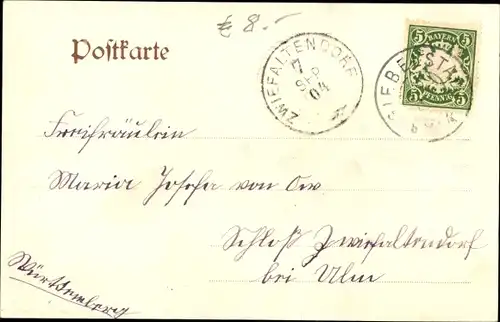 € 8.-
Postkarte
ZWIEFALTENDORF
7 SEP 04
5 BAYERN 5
5 PFENNIG 5
Freifräulein
Maria Josefa von Ow
Schloß Zwiefaltendorf
bei Ulm
Württemberg